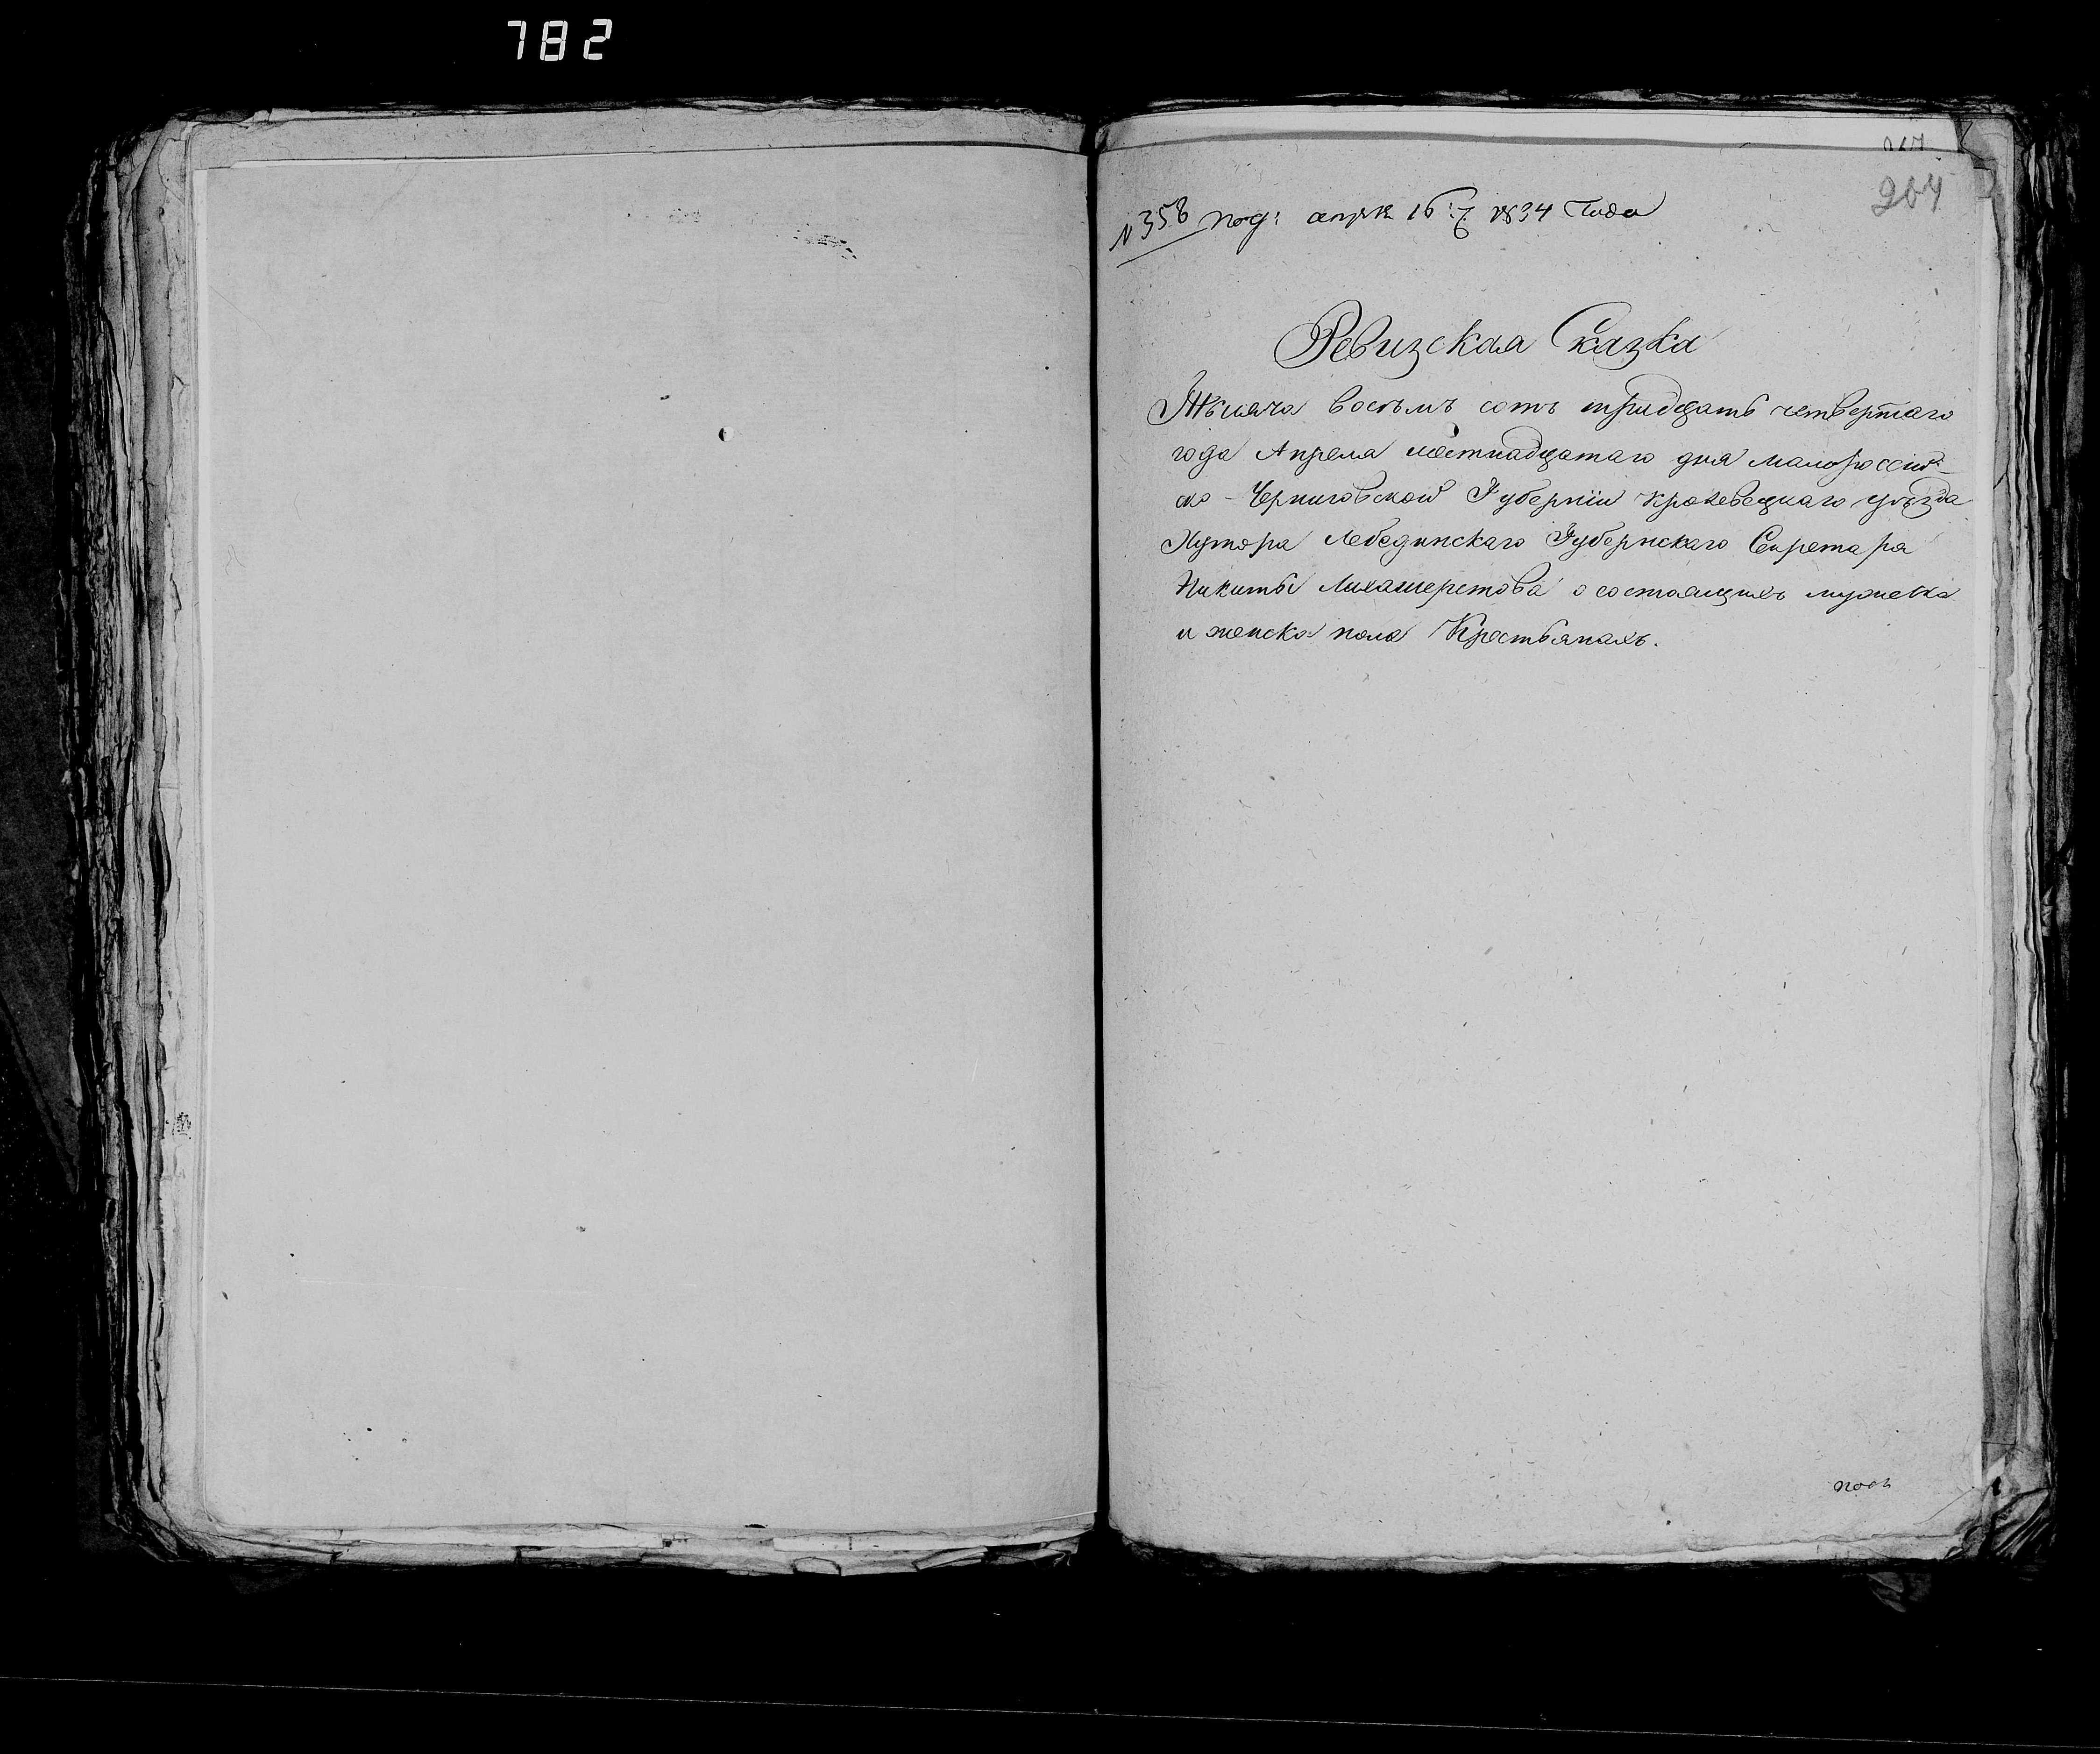 782
264
№ 358 под: апрѣ 16 1834 Года
Ревизская Сказка
Тысяча восъмъ сотъ тридцать четвертаго
года Апреля шестнадцатаго дня Малороссій-
ско-Черниговской Губерніи Кролевецкаго уѣзда
Хутора Лебединскаго Губернскаго Секретаря
Никиты Лихошерстова о состоящихъ мужеска
и женска пола Крестьянахъ.